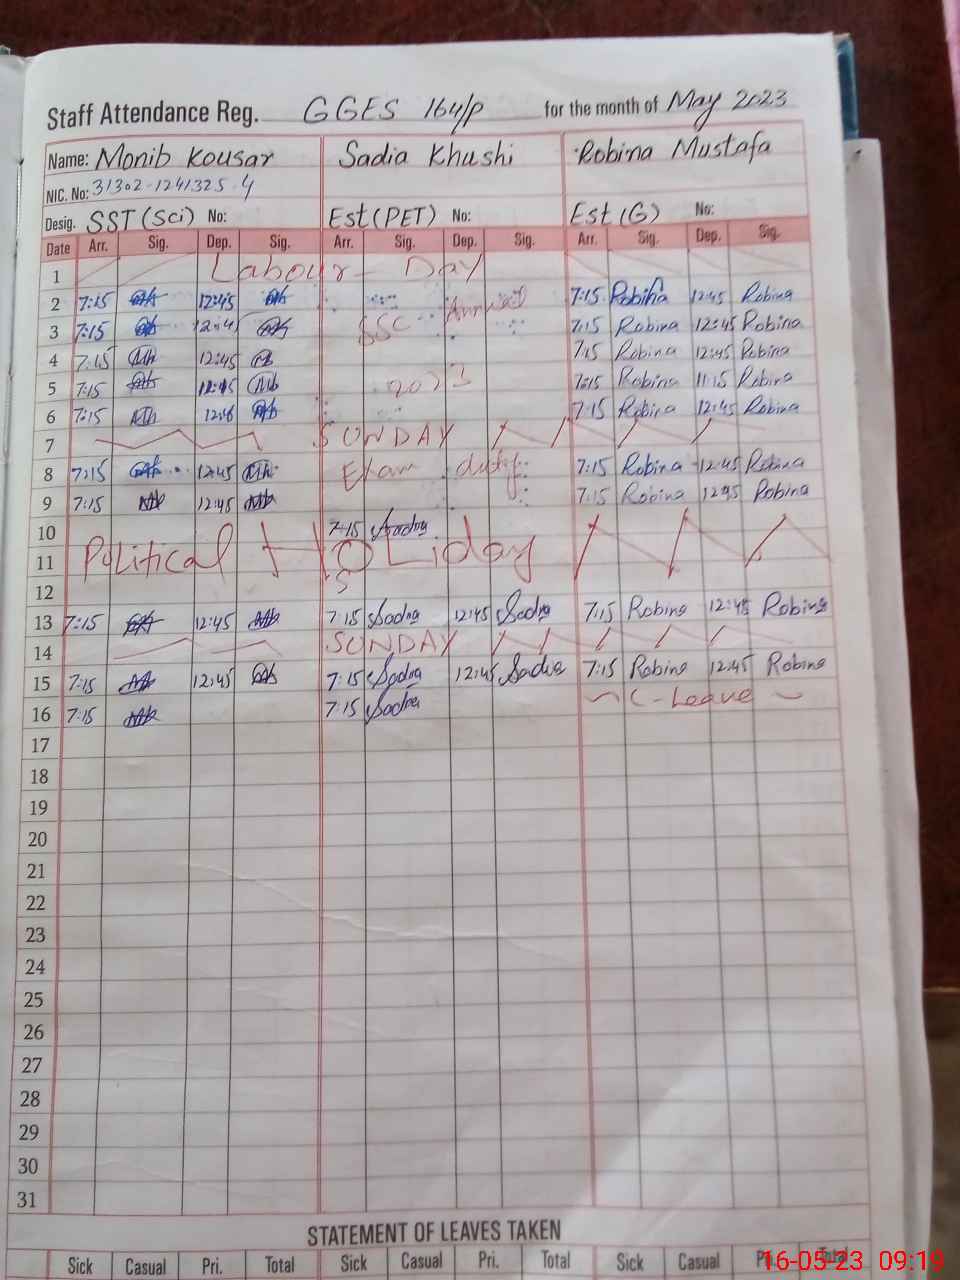 Staff Attendance Reg. GGES 164/P for the month of May 2023
Name: Monib Kousar Sadia Khushi Robina Mustafa
NIC. No: 31302-1241325-4
Desig. SST (Sci) No: Est (PET) No: Est (G) No:
Date Arr. Sig. Dep. Sig. Arr. Sig. Dep. Sig. Arr. Sig. Dep. Sig.
1 Labour Day
2 7:15 12:45 7:15 Robina 12:45 Robina
3 7:15 12:45 SSC Annual 7:15 Robina 12:45 Robina
4 7:15 12:45 7:15 Robina 12:45 Robina
5 7:15 12:45 2023 7:15 Robina 11:15 Robina
6 7:15 7:15 Robina 12:45 Robina
7 SUNDAY
8 7:15 12:45 Exam duty 7:15 Robina 12:45 Robina
9 7:15 12:45 7:15 Robina 12:45 Robina
10 7:15 Sadia
11 Political Holiday
12
13 7:15 12:45 7:15 Sadia 12:45 Sadia 7:15 Robina 12:45 Robina
14 SUNDAY
15 7:15 12:45 7:15 Sadia 12:45 Sadia 7:15 Robina 12:45 Robina
16 7:15 7:15 Sadia C-Leave
17
18
19
20
21
22
23
24
25
26
27
28
29
30
31
STATEMENT OF LEAVES TAKEN
Sick Casual Pri. Total Sick Casual Pri. Total Sick Casual Pri. Total
16-05-23 09:19